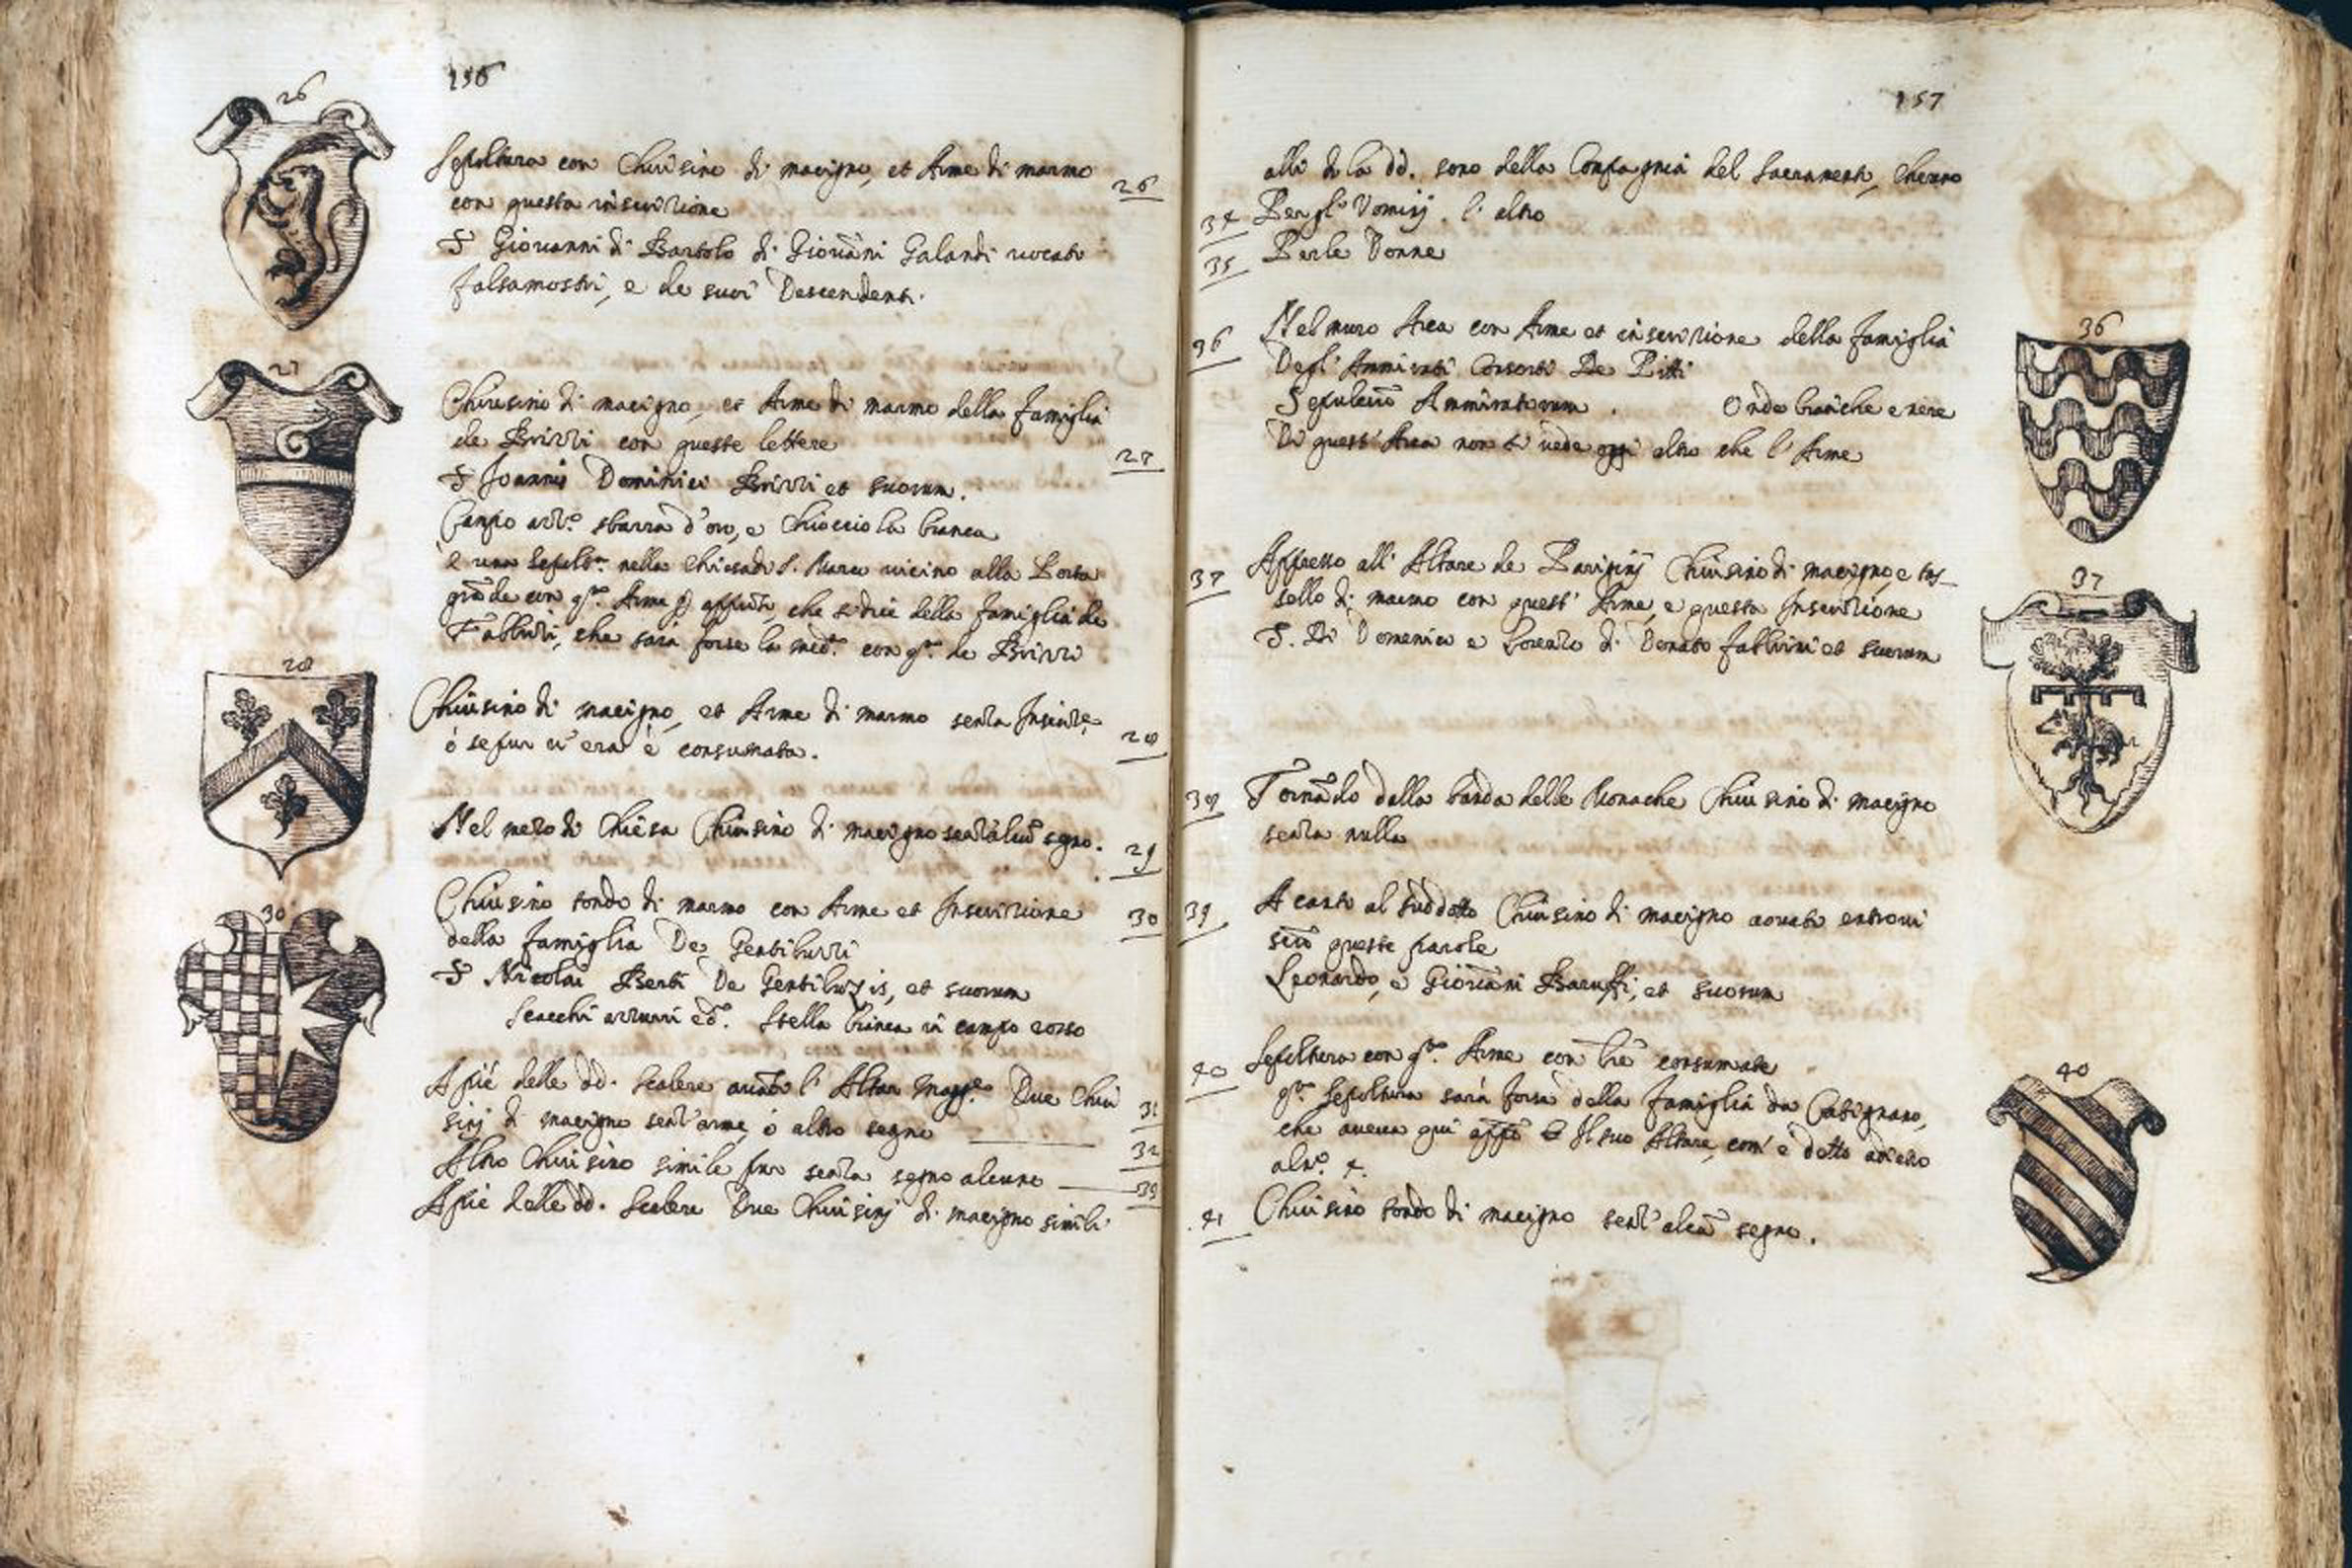 156
26
Sepoltura con Chiusino di macigno, et Arme di marmo
26
con questa inscrizione
S Giovanni di Bartolo di Giovāni Galandi vocato
falsamostri, e de suoi Descendenti.
27
Chiusino di macigno, et Arme di marmo della famiglia
de Brizzi con queste lettere
27
S Joannis Dominici Brizzi et suorum.
Campo azzo. sbarra d'oro, e Chiocciola bianca
è una Sepoltra. nella Chiesa di S. Marco vicino alla Porta
grāde con qsta. Arme p appunto, che si dice della famiglia de
Fabbrizi, che sarà forse la meda. con qsta. de Brizzi
28
Chiusino di macigno, et Arme di marmo senza Inscrize.
ò se pur v'era è consumata.
28
Nel mezo di Chiesa Chiusino di macigno senz'alcū segno.
29
30
Chiusino tondo di marmo con Arme et Inscrizione
30
della famiglia De Gentiluzzi
S Nicolai Berti De Gentiluzis, et suorum
Scacchi azzurri e Stella bianca in campo rosso
A piè delle dd. Scalere avāti l'Altar Magge. Due Chiu
31
sinj di macigno senz'arme, ò altro segno
32
Altro Chiusino simile pur senza segno alcuno
33
A piè delle dd. Scalere Due Chiusinj di macigno simili
157
alli di la dd. sono della Compagnia del Sacramento, Che uno
34
Per gl' Vominj. l'altro
35
Per le Donne
36
36
Nel muro Arca con Arme et inscrizione della famiglia
Degl'Ammirati Consorti De Pitti
Sepulcrū Ammiratorum. Onde bianche e nere
Di quest'Arca non si vede oggi altro che l'Arme
37
37
Appresso all'Altare de Pariginj Chiusino di macigno, e tas-
sello di marmo con quest'Arme, e questa Inscrizione
S. Di Domenico e Lorenzo di Donato fabbrini et suorum
38
Tornādo dalla banda delle Monache Chiusino di macigno
senza nulla
39
A canto al suddetto Chiusino di macigno aovato entrovi
queste parole
Leonardo, e Giovāni Baruffi, et suorum
40
40
Sepoltura con qsta. Arme con lre consumate
qsta. Sepoltura sarà forse della famiglia da Castignano,
che aveva qui il suo Altare, com' è detto adietro
al no. 4.
41
Chiusino tondo di macigno senz'alcū segno.